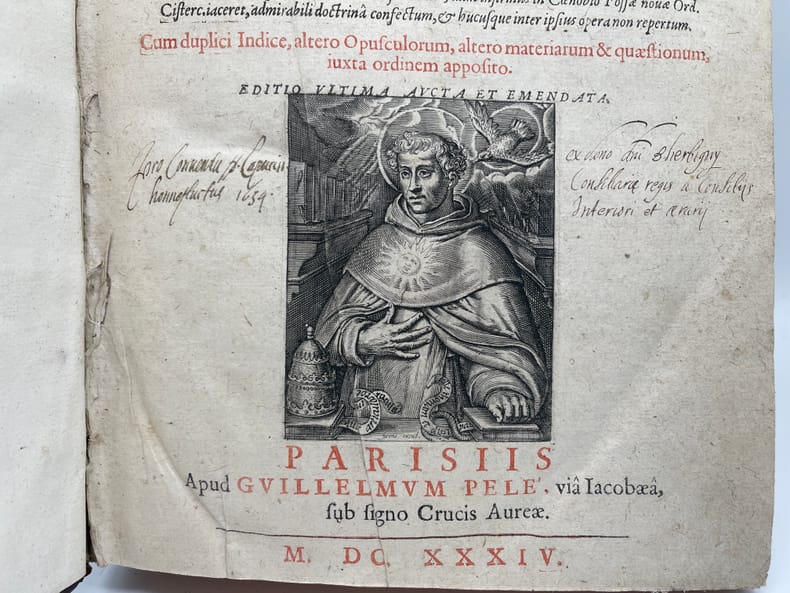 in Cœnobio Fossæ nouæ Ord.
Cisterc. iaceret, admirabili doctrinâ confectum, & hucusque inter ipsius opera non repertum.
Cum duplici Indice, altero Opusculorum, altero materiarum & quæstionum,
iuxta ordinem apposito.
EDITIO VLTIMA AVCTA ET EMENDATA.
Pro Conventu
honnefluctus 1659.
ex dono dni Dherbigny
Consiliarii regis a Consiliis
Interiori et ærarii
PARISIIS
Apud GVILLELMVM PELE', viâ Iacobæâ,
sub signo Crucis Aureæ.
M. DC XXXIV.